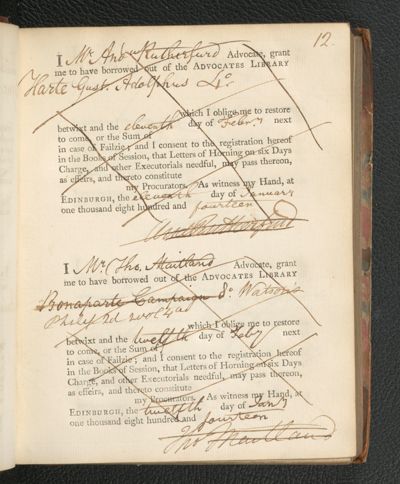 12.
I Mr Andw Rutherfurd Advocate, grant
me to have borrowed out of the ADVOCATES LIBRARY
Harte Gust. Adolphus 4o.
which I oblige me to restore
betwixt and the eleventh day of Febry next
to come, or the Sum of
in case of Failzie; and I consent to the registration hereof
in the Books of Session, that Letters of Horning on six Days
Charge, and other Executorials needful, may pass thereon,
as effeirs, and thereto constitute
my Procurators. As witness my Hand, at
EDINBURGH, the eleventh day of January
one thousand eight hundred and fourteen
Andw Rutherfurd
I Mr Tho. Maitland Advocate, grant
me to have borrowed out of the ADVOCATES LIBRARY
Bonaparte Campaign 8o. Watson's
Philip 2d
which I oblige me to restore
betwixt and the twelfth day of Feby next
to come, or the Sum of
in case of Failzie; and I consent to the registration hereof
in the Books of Session, that Letters of Horning on six Days
Charge, and other Executorials needful, may pass thereon,
as effeirs, and thereto constitute
my Procurators. As witness my Hand, at
EDINBURGH, the twelfth day of Jany
one thousand eight hundred and fourteen
Tho Maitland